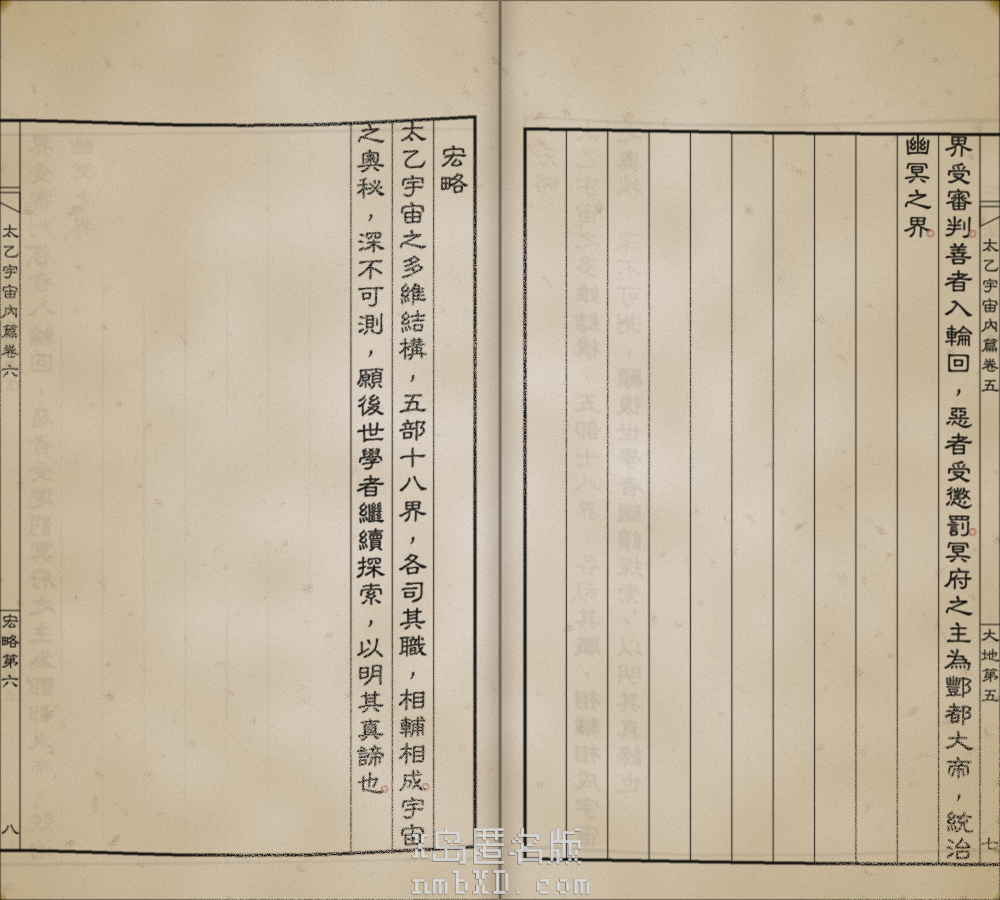 太乙宇宙內篇卷五
大地第五
七
界受審判。善者入輪回，惡者受懲罰。冥府之主為酆都大帝，統治
幽冥之界。
宏略
太乙宇宙之多維結構，五部十八界，各司其職，相輔相成。宇宙
之奧秘，深不可測，願後世學者繼續探索，以明其真諦也。
太乙宇宙內篇卷六
宏略第六
八
岛匿名版
nmbXD.com